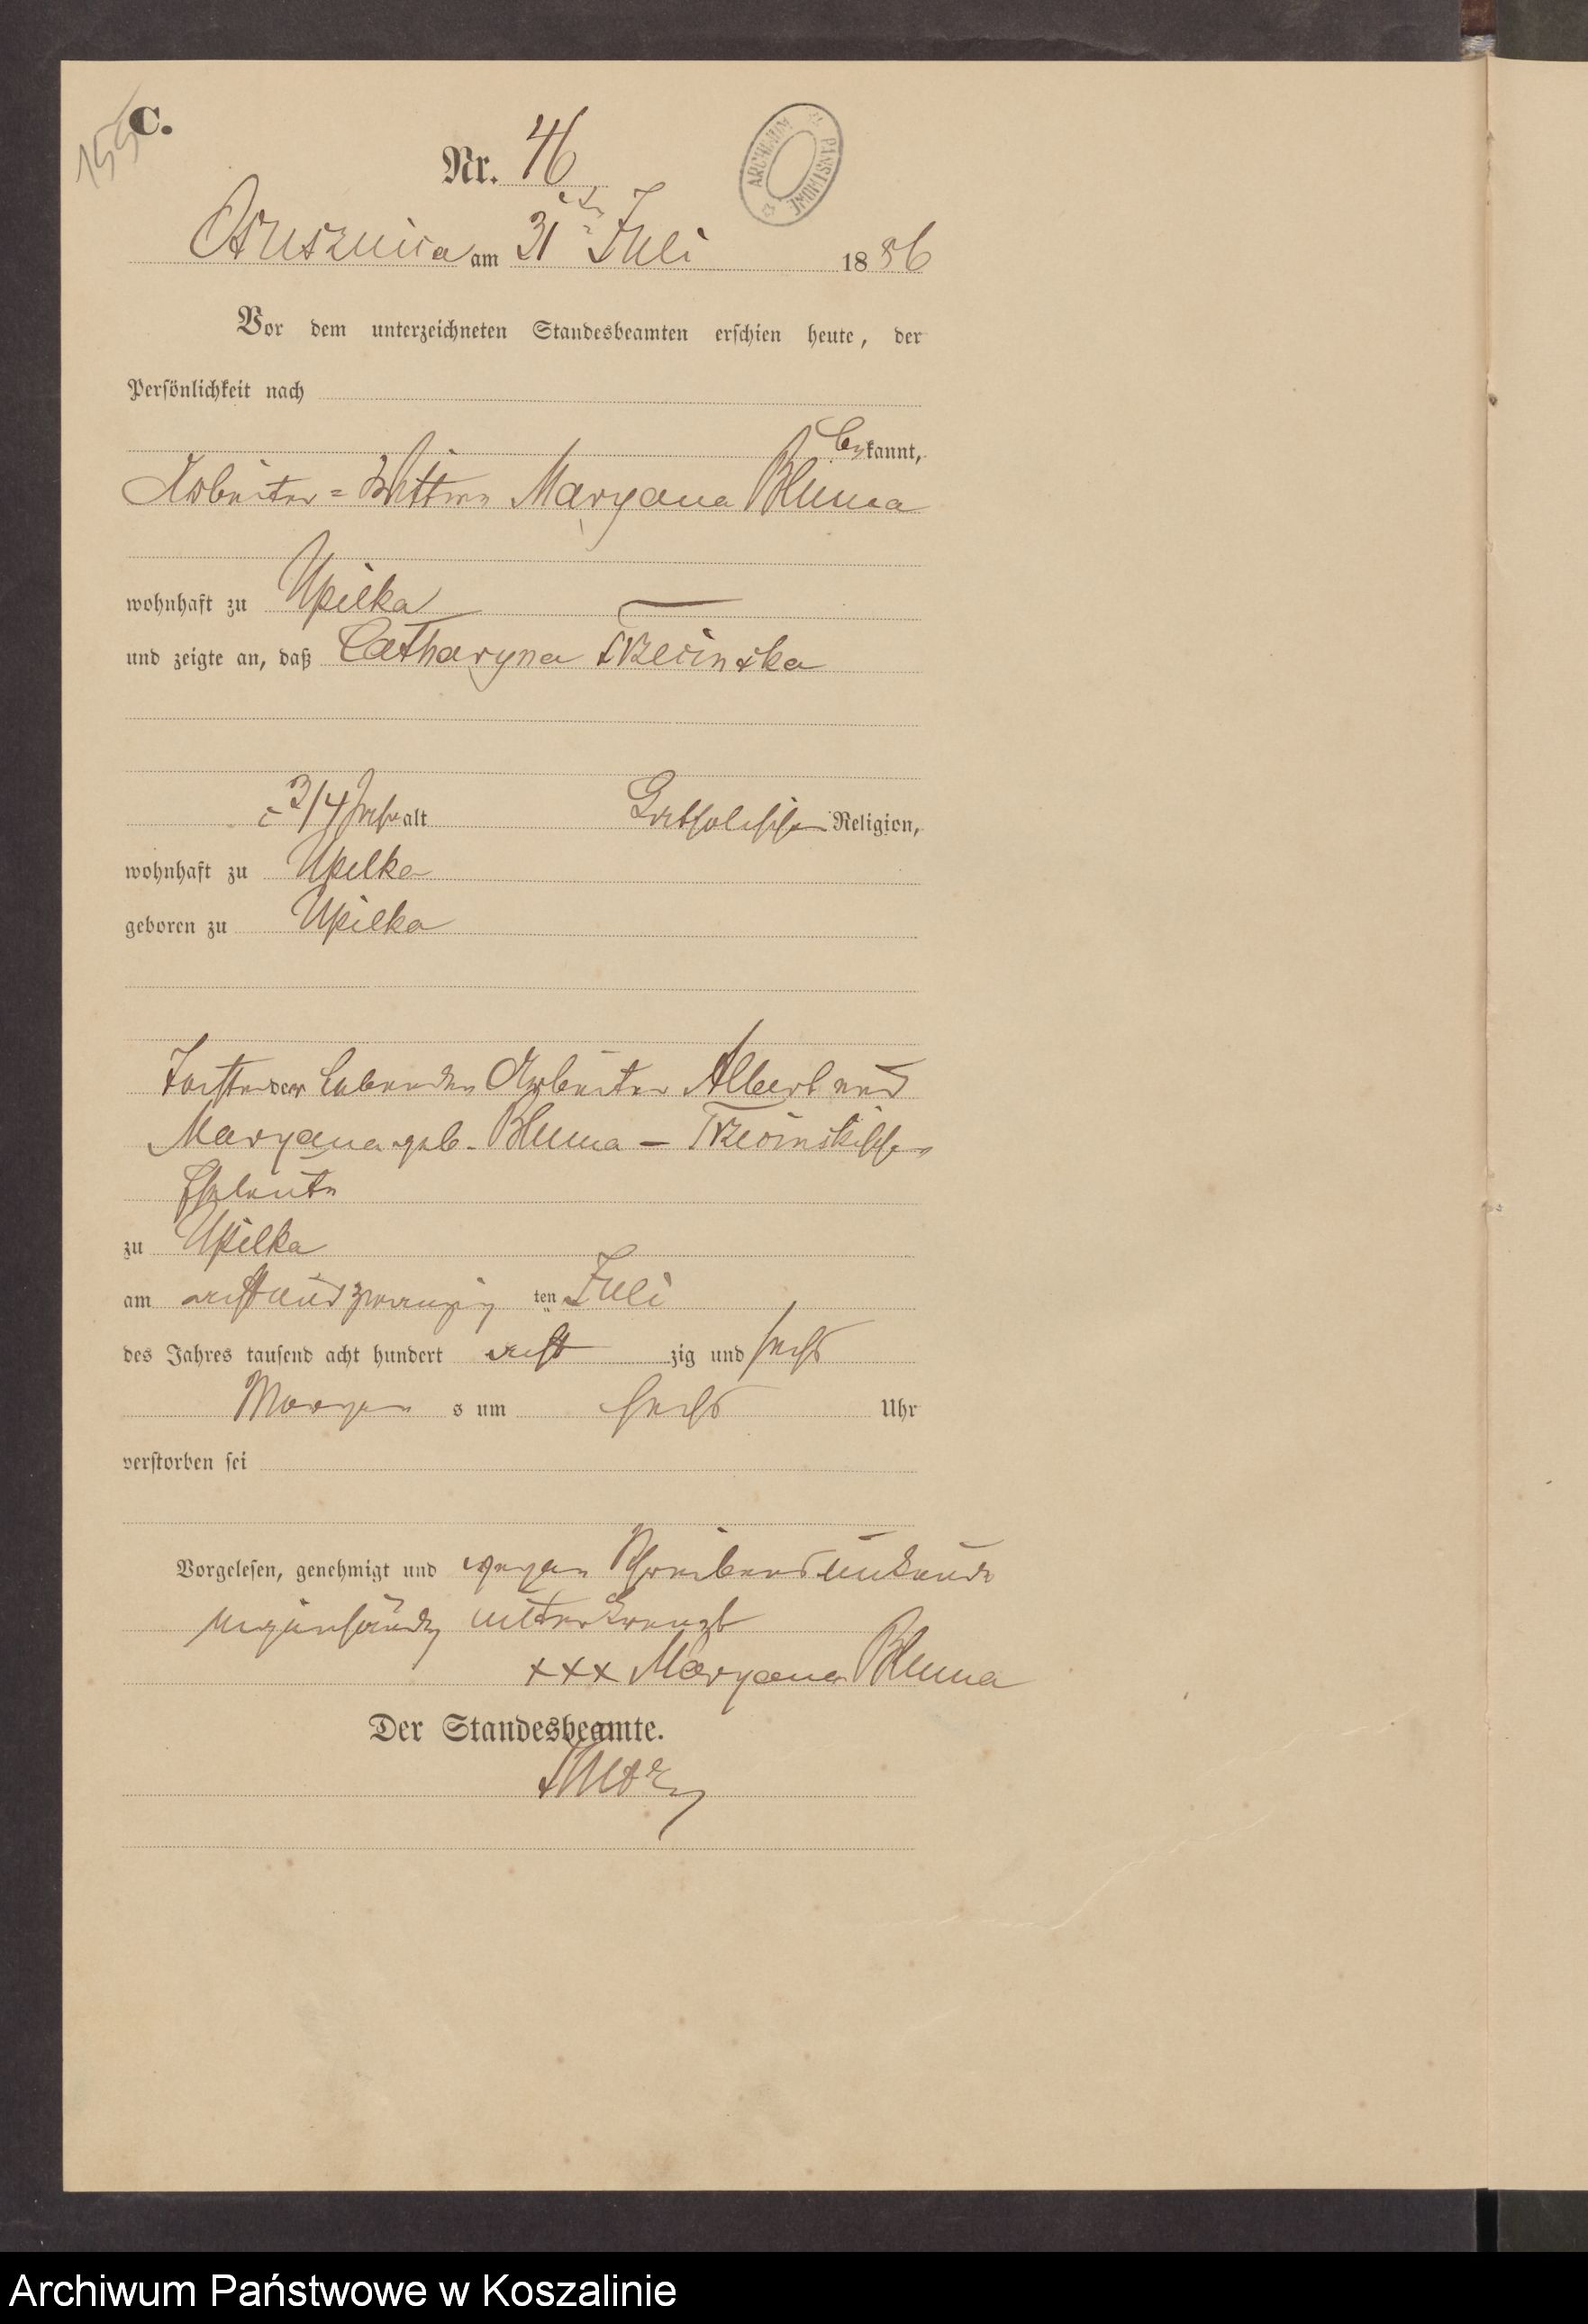 155
C.
Nr. 46
ARCHIWUM PAŃSTWOWE
Ostusznica am 31ten Juli 1886
Vor dem unterzeichneten Standesbeamten erschien heute, der
Persönlichkeit nach
bekannt,
Arbeiter=Wittwe Maryana Bluma
wohnhaft zu Upilka
und zeigte an, daß Catharyna Trzecinska
3/4 Jahr alt Katholischer Religion,
wohnhaft zu Upilka
geboren zu Upilka
Tochter der lebenden Arbeiter Albert und
Maryana geb. Bluma – Trzecinskischen
Eheleute
zu Upilka
am achtundzwanzig ten Juli
des Jahres tausend acht hundert acht zig und sechs
Morgen s um sechs Uhr
verstorben sei
Vorgelesen, genehmigt und wegen Schreibensunkunde
eigenhändig unterkreuzt
xxx Maryana Bluma
Der Standesbeamte.
Archiwum Państwowe w Koszalinie